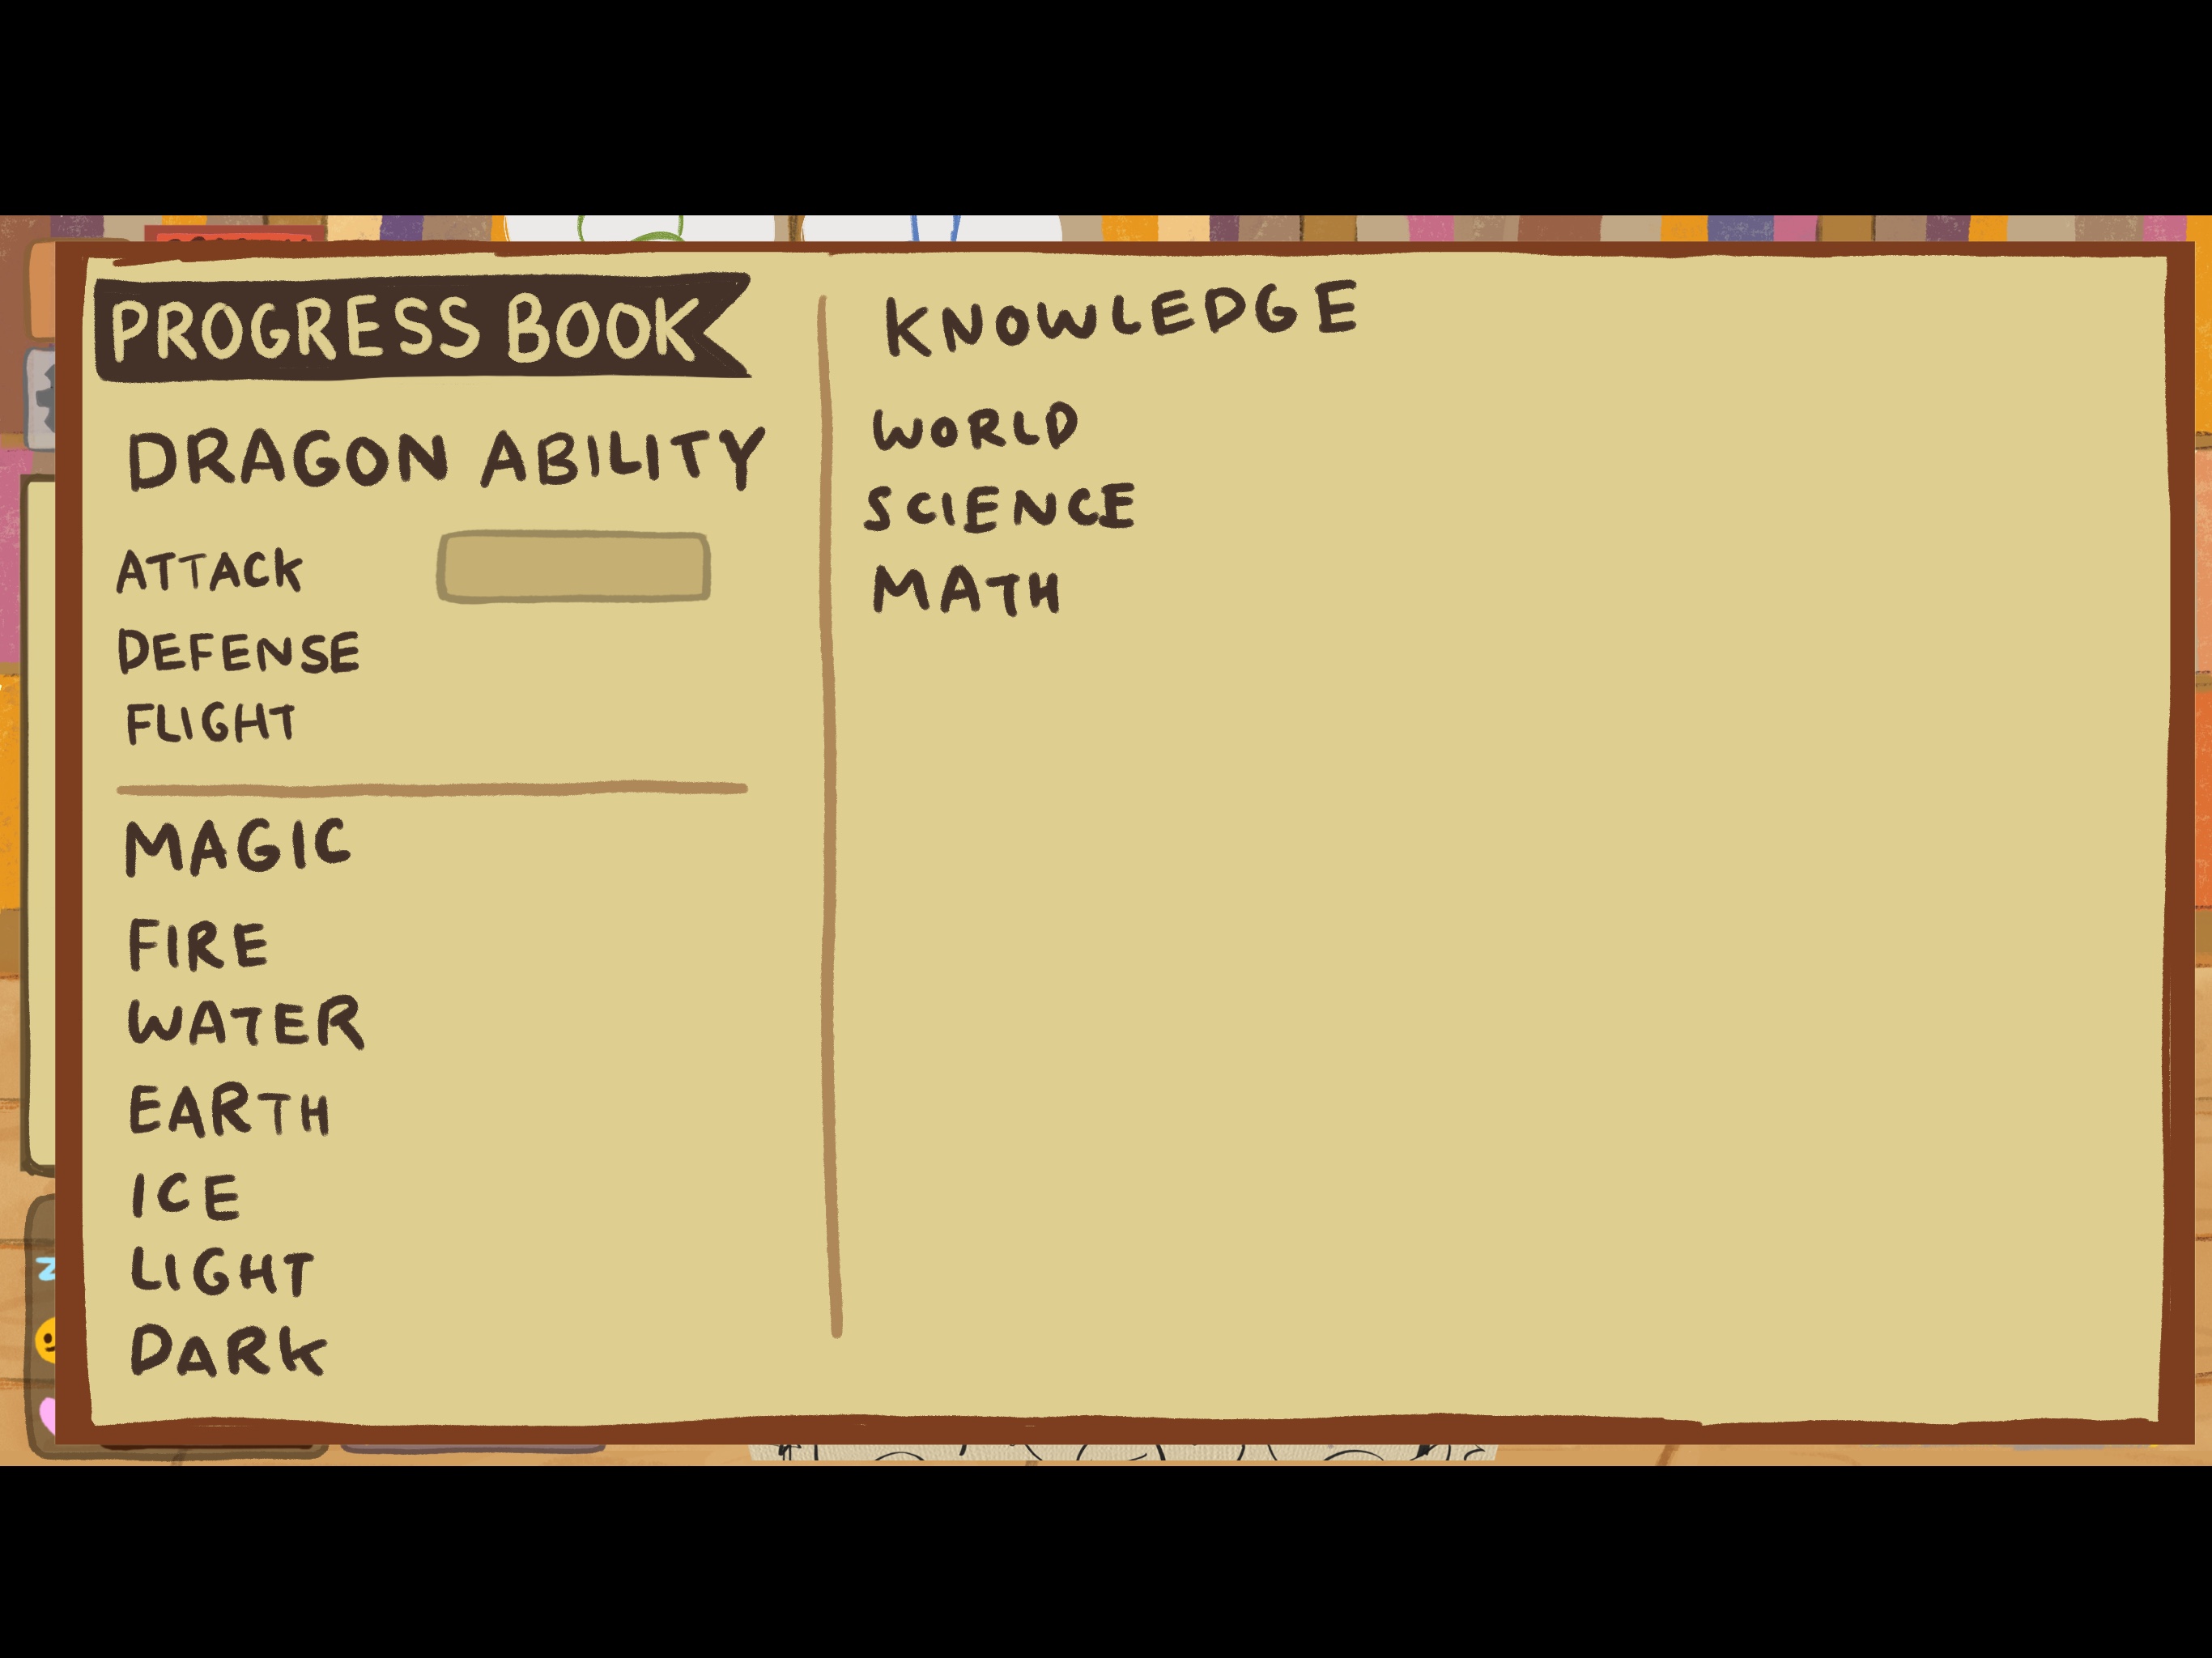 PROGRESS BOOK
DRAGON ABILITY
ATTACK
DEFENSE
FLIGHT
MAGIC
FIRE
WATER
EARTH
ICE
LIGHT
DARK
KNOWLEDGE
WORLD
SCIENCE
MATH